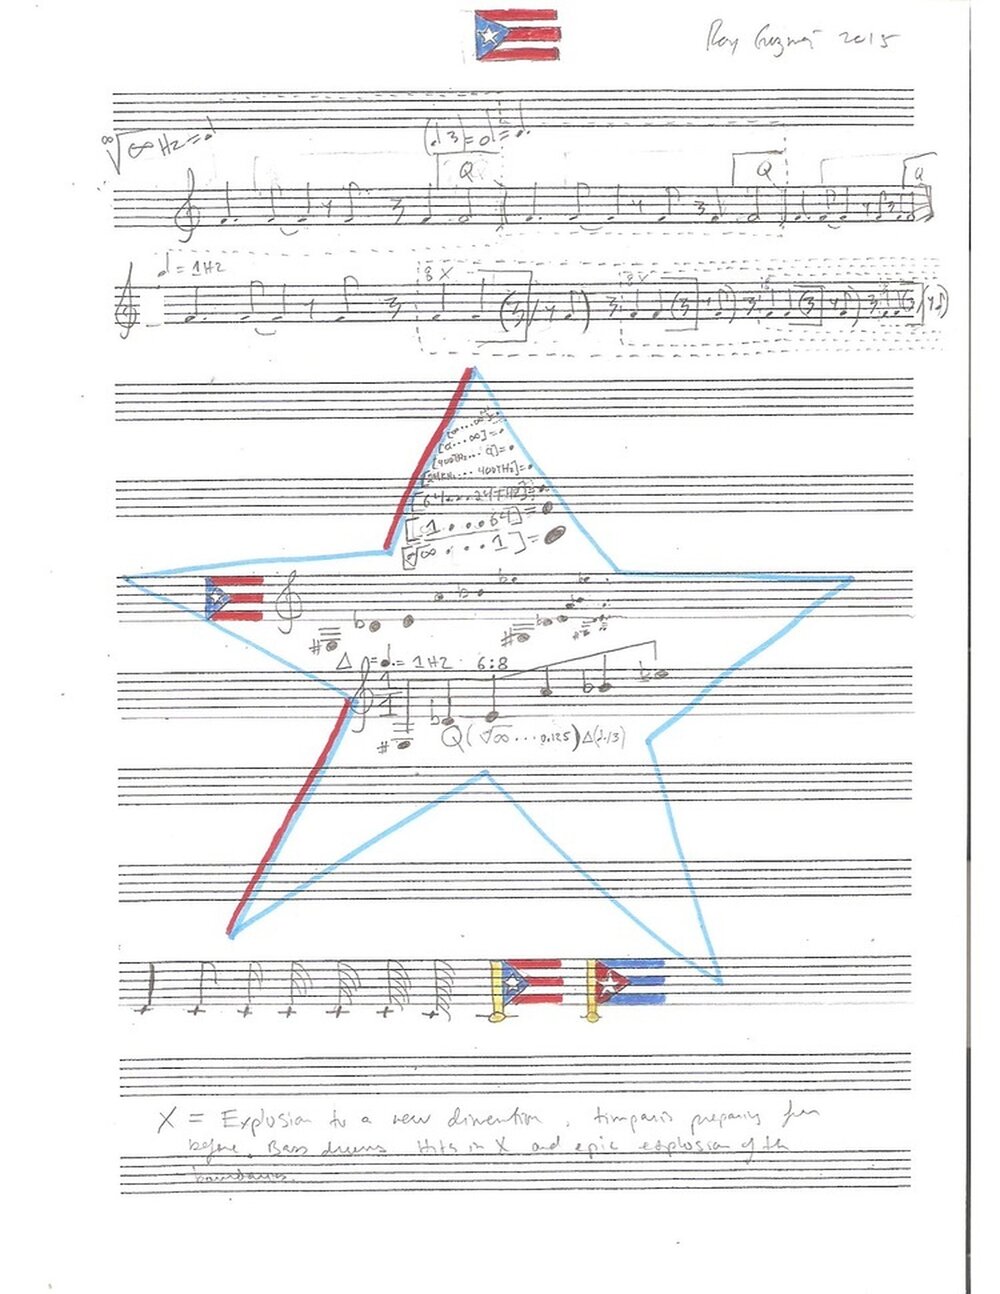 Roy Guzmán 2015
∞√∞ Hz = ♩
Q Q Q
♩ = 1Hz
8 X
[a...∞]=
[400THz... a]=
[24KH.... 400THz]=
[1...64]=
[∞√∞...1]=
Δ = ♩. = 1Hz 6:8
1
1
Q(∞√∞...0.125)Δ(1./3)
X = Explosion to a new dimention, timpanis preparing from
before. Bass drums Hits in X and epic explosion of the
boundaries.